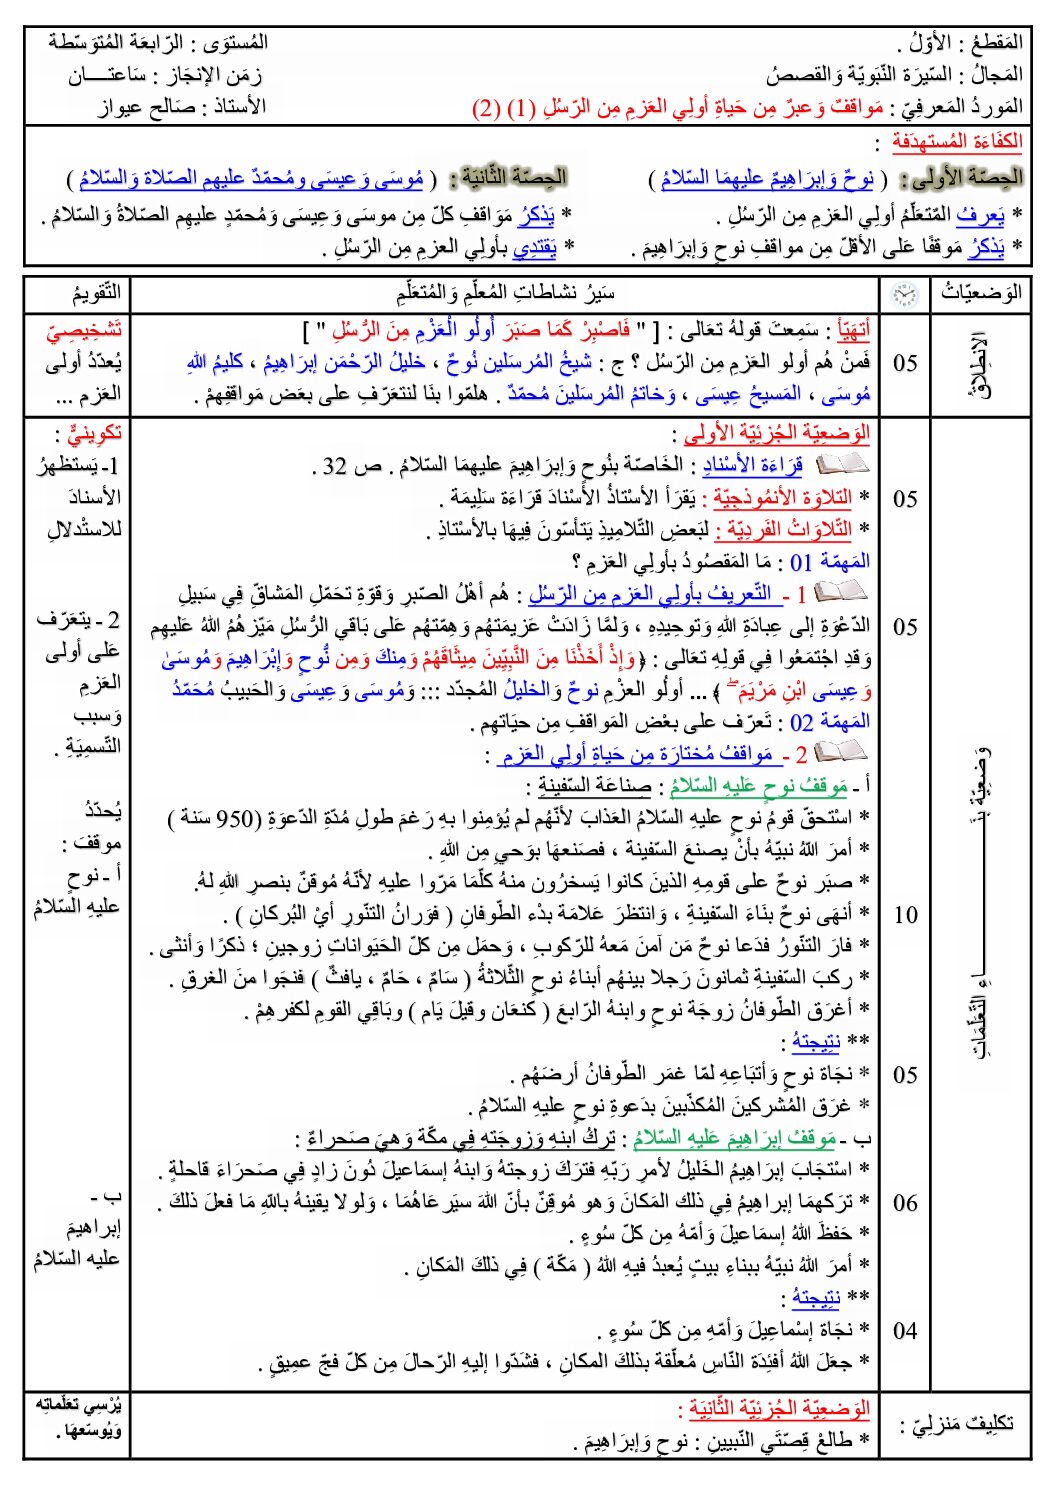 المَقطعُ : الأوّلُ .
المُستوَى : الرّابعَة المُتوَسّطة
المَجالُ : السّيرَة النّبَويّة وَالقصصُ
زمَن الإنجَاز : سَاعتـــان
المَوردُ المَعرفِيّ : مَواقفٌ وَعبرٌ مِن حَياةِ أولِي العَزمِ مِن الرّسُلِ (1) (2)
الأستاذ : صَالح عيواز
الكفَاءَة المُستهدَفة :
الحِصّة الأولَى : ( نوحٌ وَإبرَاهِيمٌ عليهمَا السّلامُ )
الحِصّة الثّانيَة : ( مُوسَى وَعيسَى ومُحمّدٌ عليهم الصّلاة وَالسّلامُ )
* يَعرفُ المُتعَلّمُ أولِي العَزمِ مِن الرّسُلِ .
* يَذكرُ مَوَاقفِ كلّ مِن موسَى وَعِيسَى وَمُحمّدٍ عليهِم الصّلاةُ وَالسّلامُ .
* يَذكرُ مَوقفًا عَلى الأقلّ مِن مواقفِ نوح وَإبرَاهِيمَ .
* يَقتدِي بأولِي العزمِ مِن الرّسُلِ .
الوَضعيّاتُ
سَيرُ نشاطاتِ المُعلّمِ وَالمُتعَلّمِ
التّقويمُ
الانطِلاقُ
05
أتهَيّأ : سَمِعتَ قولهُ تعَالى : [ " فَاصْبِرْ كَمَا صَبَرَ أُولُو الْعَزْمِ مِنَ الرُّسُلِ " ]
فَمنْ هُم أولو العَزمِ مِن الرّسُل ؟ ج : شيخُ المُرسَلين نُوحٌ ، خليلُ الرّحْمَن إبرَاهِيمُ ، كليمُ اللهِ
مُوسَى ، المَسيحُ عِيسَى ، وَخاتمُ المُرسَلينَ مُحمّدٌ . هلمّوا بنَا لنتعَرّفِ على بعَض مَواقفِهمْ .
تَشْخِيصِيّ
يُعدّدُ أولى
العَزم ...
وَضعِيّة بنَـــــاءِ التّعَلّمَاتِ
الوَضعِيّة الجُزئِيّة الأولى :
قرَاءَة الأسْنادِ : الخَاصّة بنُوح وَإبرَاهِيمَ عليهمَا السّلامُ . ص 32 .
05
* التلاوَة الأنمُوذجيّة : يَقرَأ الأسْتاذُ الأسْنادَ قرَاءَة سَلِيمَة .
* التّلاوَاتُ الفَردِيّة : لبَعضِ التّلاميذِ يَتأسّونَ فِيهَا بالأسْتاذِ .
المَهمّة 01 : مَا المَقصُودُ بأولِي العَزمِ ؟
1 - التّعريفُ بأولِي العَزمِ مِن الرّسُلِ : هُم أهْلُ الصّبرِ وَقوّةِ تحَمّلِ المَشاقّ فِي سَبيلِ
05
الدّعْوَةِ إلى عِبادَةِ اللهِ وَتوحِيدِهِ ، وَلمَّا زَادَتْ عَزيمَتهُم وَهِمّتهُم عَلى بَاقي الرُّسُلِ مَيّزهُمُ اللهُ عَليهِم
وَقدِ اجْتمَعُوا فِي قولِهِ تعَالى : ﴿ وَإِذْ أَخَذْنَا مِنَ النَّبِيِّينَ مِيثَاقَهُمْ وَمِنكَ وَمِن نُّوحٍ وَإِبْرَاهِيمَ وَمُوسَىٰ
وَعِيسَى ابْنِ مَرْيَمَ ۖ ﴾ ... أولُو العزْمِ نوحٌ وَالخليلُ المُجدّد ::: وَمُوسَى وَعِيسَى وَالحَبيبُ مُحَمّدُ
المَهمّة 02 : تَعرّف على بعْضِ المَواقفِ مِن حيَاتهِم .
2 - مَواقفُ مُختارَة مِن حَياةِ أولِي العَزمِ :
أ ـ مَوقفُ نوحٍ عَليهِ السّلامُ : صِناعَة السّفينةِ :
* اسْتحقّ قومُ نوحٍ عليهِ السّلامُ العَذابَ لأنّهُم لم يُؤمِنوا بهِ رَغمَ طولِ مُدّةِ الدّعوَةِ (950 سَنة )
* أمرَ اللهُ نبيّهُ بأنْ يصنعَ السّفينة ، فصَنعهَا بوَحي مِن اللهِ .
* صبَر نوحٌ على قومِهِ الذينَ كانوا يَسخرُون منهُ كلّمَا مَرّوا عليهِ لأنّهُ مُوقنٌ بنصرِ اللهِ لهُ.
10
* أنهَى نوحٌ بنَاءَ السّفينةِ ، وَانتظرَ عَلامَة بدْء الطّوفانِ ( فوَرانُ التنّورِ أيْ البُركانِ ) .
* فارَ التنّورُ فدَعا نوحٌ مَن آمنَ مَعهُ للرّكوبِ ، وَحمَل مِن كلّ الحَيَواناتِ زوجينِ ؛ ذكرًا وَأنثى .
* ركبَ السّفينةِ ثمانونَ رَجلا بينهُم أبناءُ نوحٍ الثّلاثةُ ( سَامٌ ، حَامٌ ، يافثٌ ) فنجَوا منَ الغرقِ .
* أغرَق الطّوفانُ زوجَة نوحٍ وابنهُ الرّابعَ ( كنعَان وقيلَ يَام ) وبَاقي القومِ لكفرهِمْ .
** نتِيجتهُ :
05
* نجَاة نوحٍ وَأتبَاعِهِ لمّا غمَر الطّوفانُ أرضَهُم .
* غرَق المُشركينَ المُكذّبينَ بدَعوةِ نوحٍ عليهِ السّلامُ .
ب ـ مَوقفُ إبرَاهِيمَ عَليهِ السّلامُ : تركُ ابنهِ وَزوجَتهِ فِي مكّة وَهيَ صَحراءٌ :
* اسْتجَابَ إبرَاهِيمُ الخَليلُ لأمرِ رَبّهِ فترَكَ زوجتهُ وَابنهُ إسمَاعيلَ دُونَ زادٍ في صَحرَاءَ قاحلةٍ .
06
* ترَكهمَا إبراهِيمُ فِي ذلك المَكانَ وَهو مُوقِنٌ بأنّ اللهَ سيَرعَاهُمَا ، وَلولا يقينهُ باللهِ مَا فعلَ ذلكَ .
* حَفظَ اللهُ إسمَاعيلَ وَأمّهُ مِن كلّ سُوءٍ .
* أمرَ اللهُ نبيّهُ ببناءِ بيتٍ يُعبدُ فيهِ اللهُ ( مَكّة ) فِي ذلكَ المَكانِ .
** نتِيجتهُ :
04
* نجَاة إسْماعِيلَ وَأمّهِ مِن كلّ سُوءٍ .
* جعَلَ اللهُ أفئِدَة النّاسِ مُعلّقة بذلكَ المكانِ ، فشَدّوا إليهِ الرّحالَ مِن كلّ فجّ عمِيقٍ .
تكوِينيٌّ :
1ـ يَستظهرُ
الأسنادَ
للاستْدلالِ
2 ـ يتعَرّف
عَلى أولى
العَزمِ
وَسبب
التّسمِيَةِ .
يُحدّدُ
موقفَ :
أ ـ نوحٍ
عليهِ السّلامُ
ب -
إبراهيمَ
عليه السّلامُ
تكلِيفٌ مَنزلِيّ :
الوَضعِيّة الجُزئِيّة الثّانِيَة :
* طالعْ قِصّتَي النّبيينِ : نوحٍ وَإبرَاهِيمَ .
يُرْسِي تعَلّماتِه
وَيُوسّعهَا .